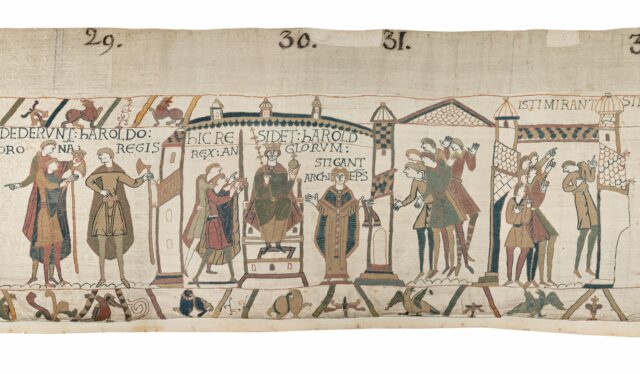 29.
30.
31.
DEDERVNT: hAROLDO:
ORO NA: REGIS
hIC RE SIDET: hAROLD
REX: AN GLORVM:
STIGANT
ARChI EPS
ISTI MIRANT